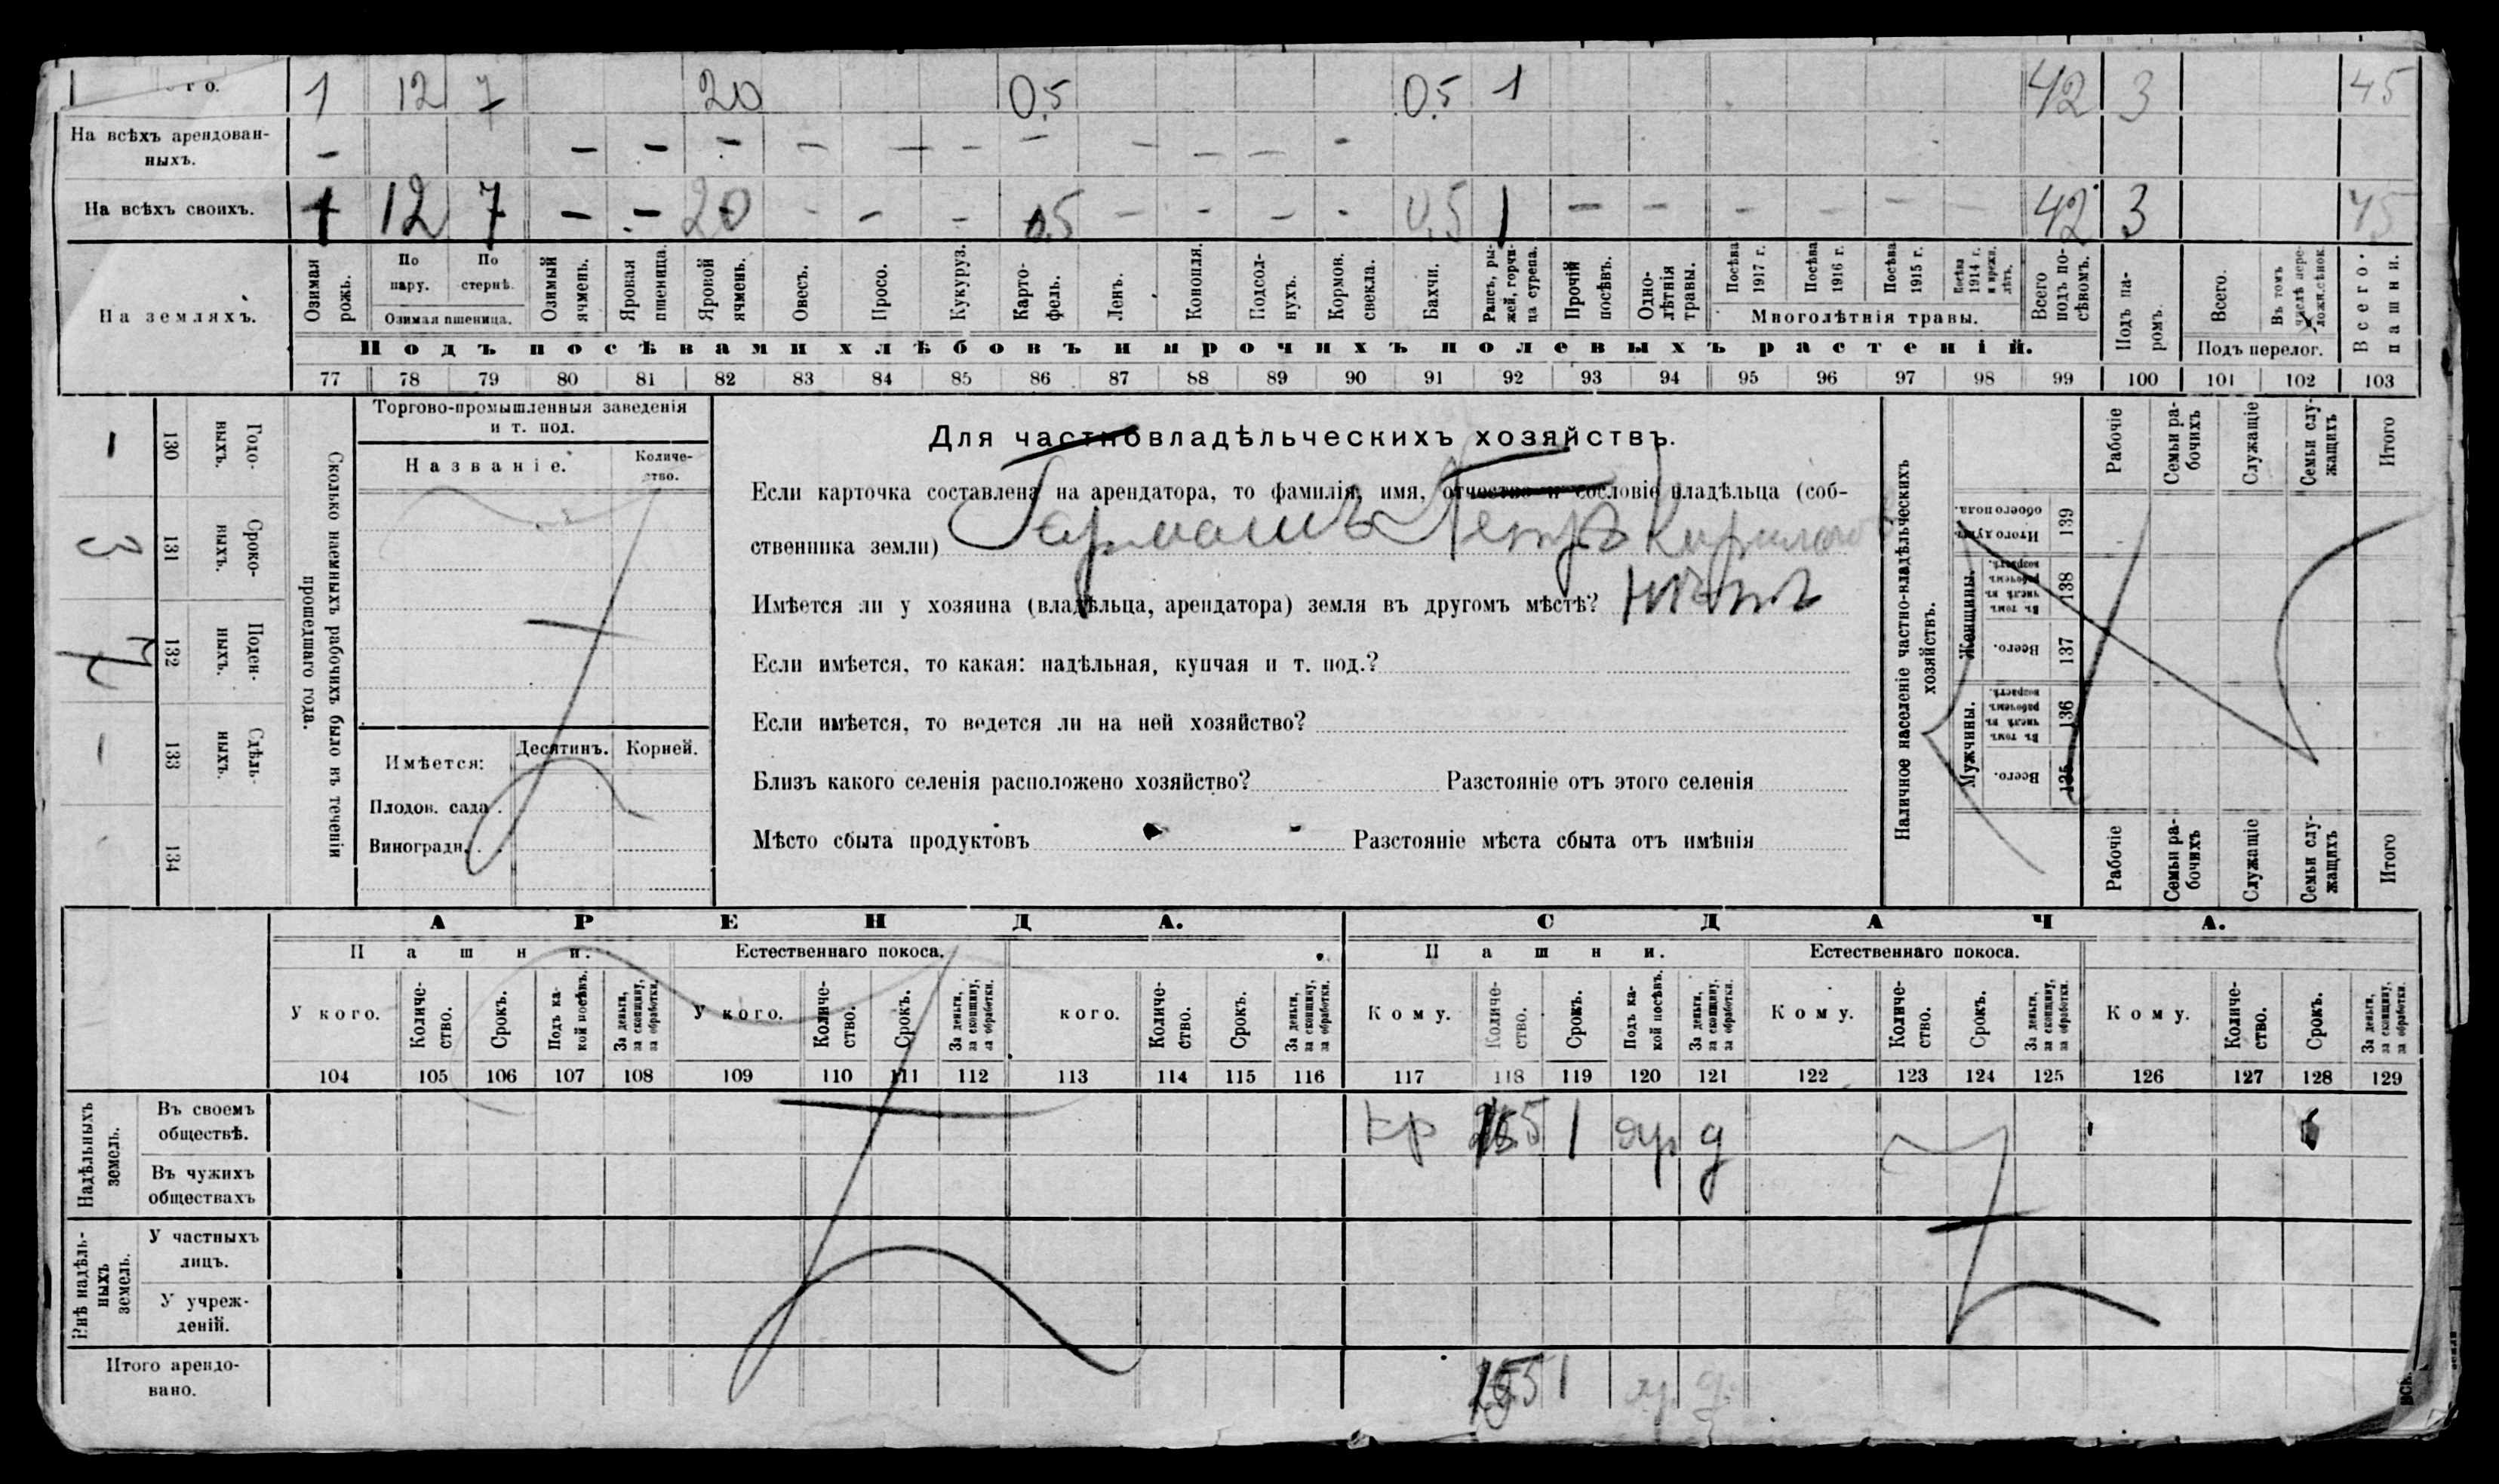 го. 1 12 7 20 0,5 0,5 1 42 3 45
На всѣхъ арендован-
ныхъ. - - - - - - - - - - - - -
На всѣхъ своихъ. 1 12 7 - - 20 - - - 0,5 - - - - 0,5 1 - - - - - - 42 3 45
На земляхъ.
Озимая рожь.
По пару.
По стернѣ.
Озимая пшеница.
Озимый ячмень.
Яровая пшеница.
Яровой ячмень.
Овесъ.
Просо.
Кукуруз.
Карто-
фель.
Ленъ.
Конопля.
Подсол-
нухъ.
Кормов. свекла.
Бахчи.
Рапсъ, ры-
жей, горчи-
ца сурепа.
Прочій посѣвъ.
Одно-
лѣтнія травы.
Посѣва 1917 г.
Посѣва 1916 г.
Посѣва 1915 г.
Посѣва 1914 г. и прежн. лѣтъ.
Многолѣтнія травы.
Всего подъ по-
сѣвомъ.
Подъ па-
ромъ.
Всего.
Въ томъ числѣ пере-
ложн. сѣнок.
Подъ перелог.
Всего пашни.
Подъ посѣвами хлѣбовъ и прочихъ полевыхъ растеній.
77 78 79 80 81 82 83 84 85 86 87 88 89 90 91 92 93 94 95 96 97 98 99 100 101 102 103
Сколько наемныхъ рабочихъ было въ теченіи
прошедшаго года.
Годо-
ныхъ.
130
-
Сроко-
ныхъ.
131
3
Поден-
ныхъ.
132
7
Сдѣль-
ныхъ.
133
-
134
Торгово-промышленныя заведенія
и т. под.
Названіе.
Количе-
ство.
Имѣется:
Десятинъ.
Корней.
Плодов. сада .
Виноградн. . .
Для частновладѣльческихъ хозяйствъ.
Если карточка составлена на арендатора, то фамилія, имя, отчество и сословіе владѣльца (соб-
ственника земли) Петръ
Имѣется ли у хозяина (владѣльца, арендатора) земля въ другомъ мѣстѣ? Нѣтъ
Если имѣется, то какая: надѣльная, купчая и т. под.?
Если имѣется, то ведется ли на ней хозяйство?
Близъ какого селенія расположено хозяйство? Разстояніе отъ этого селенія
Мѣсто сбыта продуктовъ - Разстояніе мѣста сбыта отъ имѣнія
Наличное населеніе частно-владѣльческихъ
хозяйствъ.
Мужчины.
Женщины.
Всего.
135
Въ томъ числѣ въ рабочемъ возрастѣ.
136
Всего.
137
Въ томъ числѣ въ рабочемъ возрастѣ.
138
Итого душъ обоего пола.
139
Рабочіе
Семьи ра-
бочихъ
Служащіе
Семьи слу-
жащихъ
Итого
Рабочіе
Семьи ра-
бочихъ
Служащіе
Семьи слу-
жащихъ
Итого
АРЕНДА.
СДАЧА.
Пашни.
Естественнаго покоса.
Пашни.
Естественнаго покоса.
У кого.
Количе-
ство.
Срокъ.
Подъ ка-
кой посѣвъ.
За деньги,
за скопщину,
за обработки.
У кого.
Количе-
ство.
Срокъ.
За деньги,
за скопщину,
за обработки.
кого.
Количе-
ство.
Срокъ.
За деньги,
за скопщину,
за обработки.
Кому.
Количе-
ство.
Срокъ.
Подъ ка-
кой посѣвъ.
За деньги,
за скопщину,
за обработки.
Кому.
Количе-
ство.
Срокъ.
За деньги,
за скопщину,
за обработки.
Кому.
Количе-
ство.
Срокъ.
За деньги,
за скопщину,
за обработки.
104 105 106 107 108 109 110 111 112 113 114 115 116 117 118 119 120 121 122 123 124 125 126 127 128 129
Надѣльныхъ
земель.
Въ своемъ
обществѣ. кр 1 яр д
Въ чужихъ
обществахъ
Внѣ надѣль-
ныхъ
земель.
У частныхъ
лицъ.
У учреж-
деній.
Итого арендо-
вано. 1 яр д